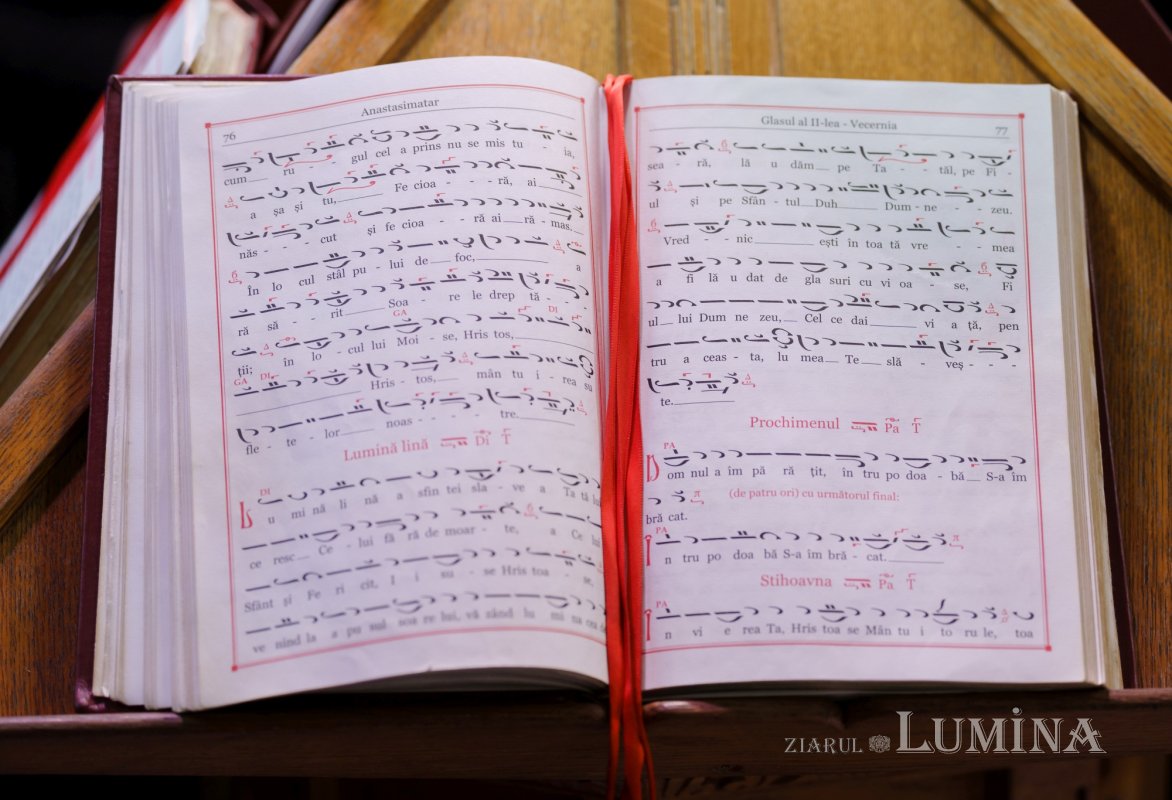 76
Anastasimatar
cum___ ru - gul cel a prins nu se mis tu - ia,
a șa și tu,___ Fe cioa - - - ră, ai___
năs - - - cut și fe cioa - - ră ai___ră - mas.
În lo cul stâl pu - lui de___ foc,___ a
ră să - - rit___ Soa - re le drep tă - -
GA DI
ții; în lo - cul lui Moi - se, Hris tos,___
GA DI
Hris - tos,___ mân tu i - rea su
fle - te - lor___ noas - - - tre.___
Lumină lină Di T
DI
Lu mi nă li nă a sfin tei sla - ve a Ta tă lu
ce resc___ Ce - lui fă ră de moar - te, a Ce lui
Sfânt și Fe ri cit, I i su - se Hris toa - se,
ve nind la a pu sul soa re lui, vă zând lu mi na cea
Glasul al II-lea - Vecernia
77
sea - ră, lă u dăm___ pe Ta - - tăl, pe Fi -
ul și pe Sfân - tul___Duh___ Dum - ne - zeu.
Vred - - nic___ ești în toa tă vre - - mea
a fi lă u dat de gla suri cu vi oa - se, Fi
ul___ lui Dum ne zeu,___ Cel ce dai___ vi a ță, pen
tru a ceas - ta, lu mea___ Te___ slă - veș - - -
te.___
Prochimenul Pa T
PA
Dom nul a îm pă ră țit, în tru po doa - bă___ S-a îm
bră cat.
(de patru ori) cu următorul final:
PA
În tru po doa bă S-a îm bră - cat.___
Stihoavna Pa T
PA
În vi e rea Ta, Hris toa se Mân tu i to ru le, toa
ZIARUL LUMINA